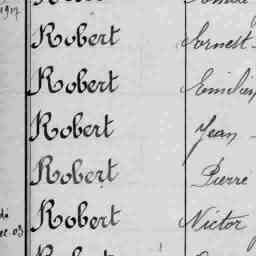 1917
Robert Ernest
Robert Emilien
Robert Jean
Robert Pierre
Robert Victor
Robert